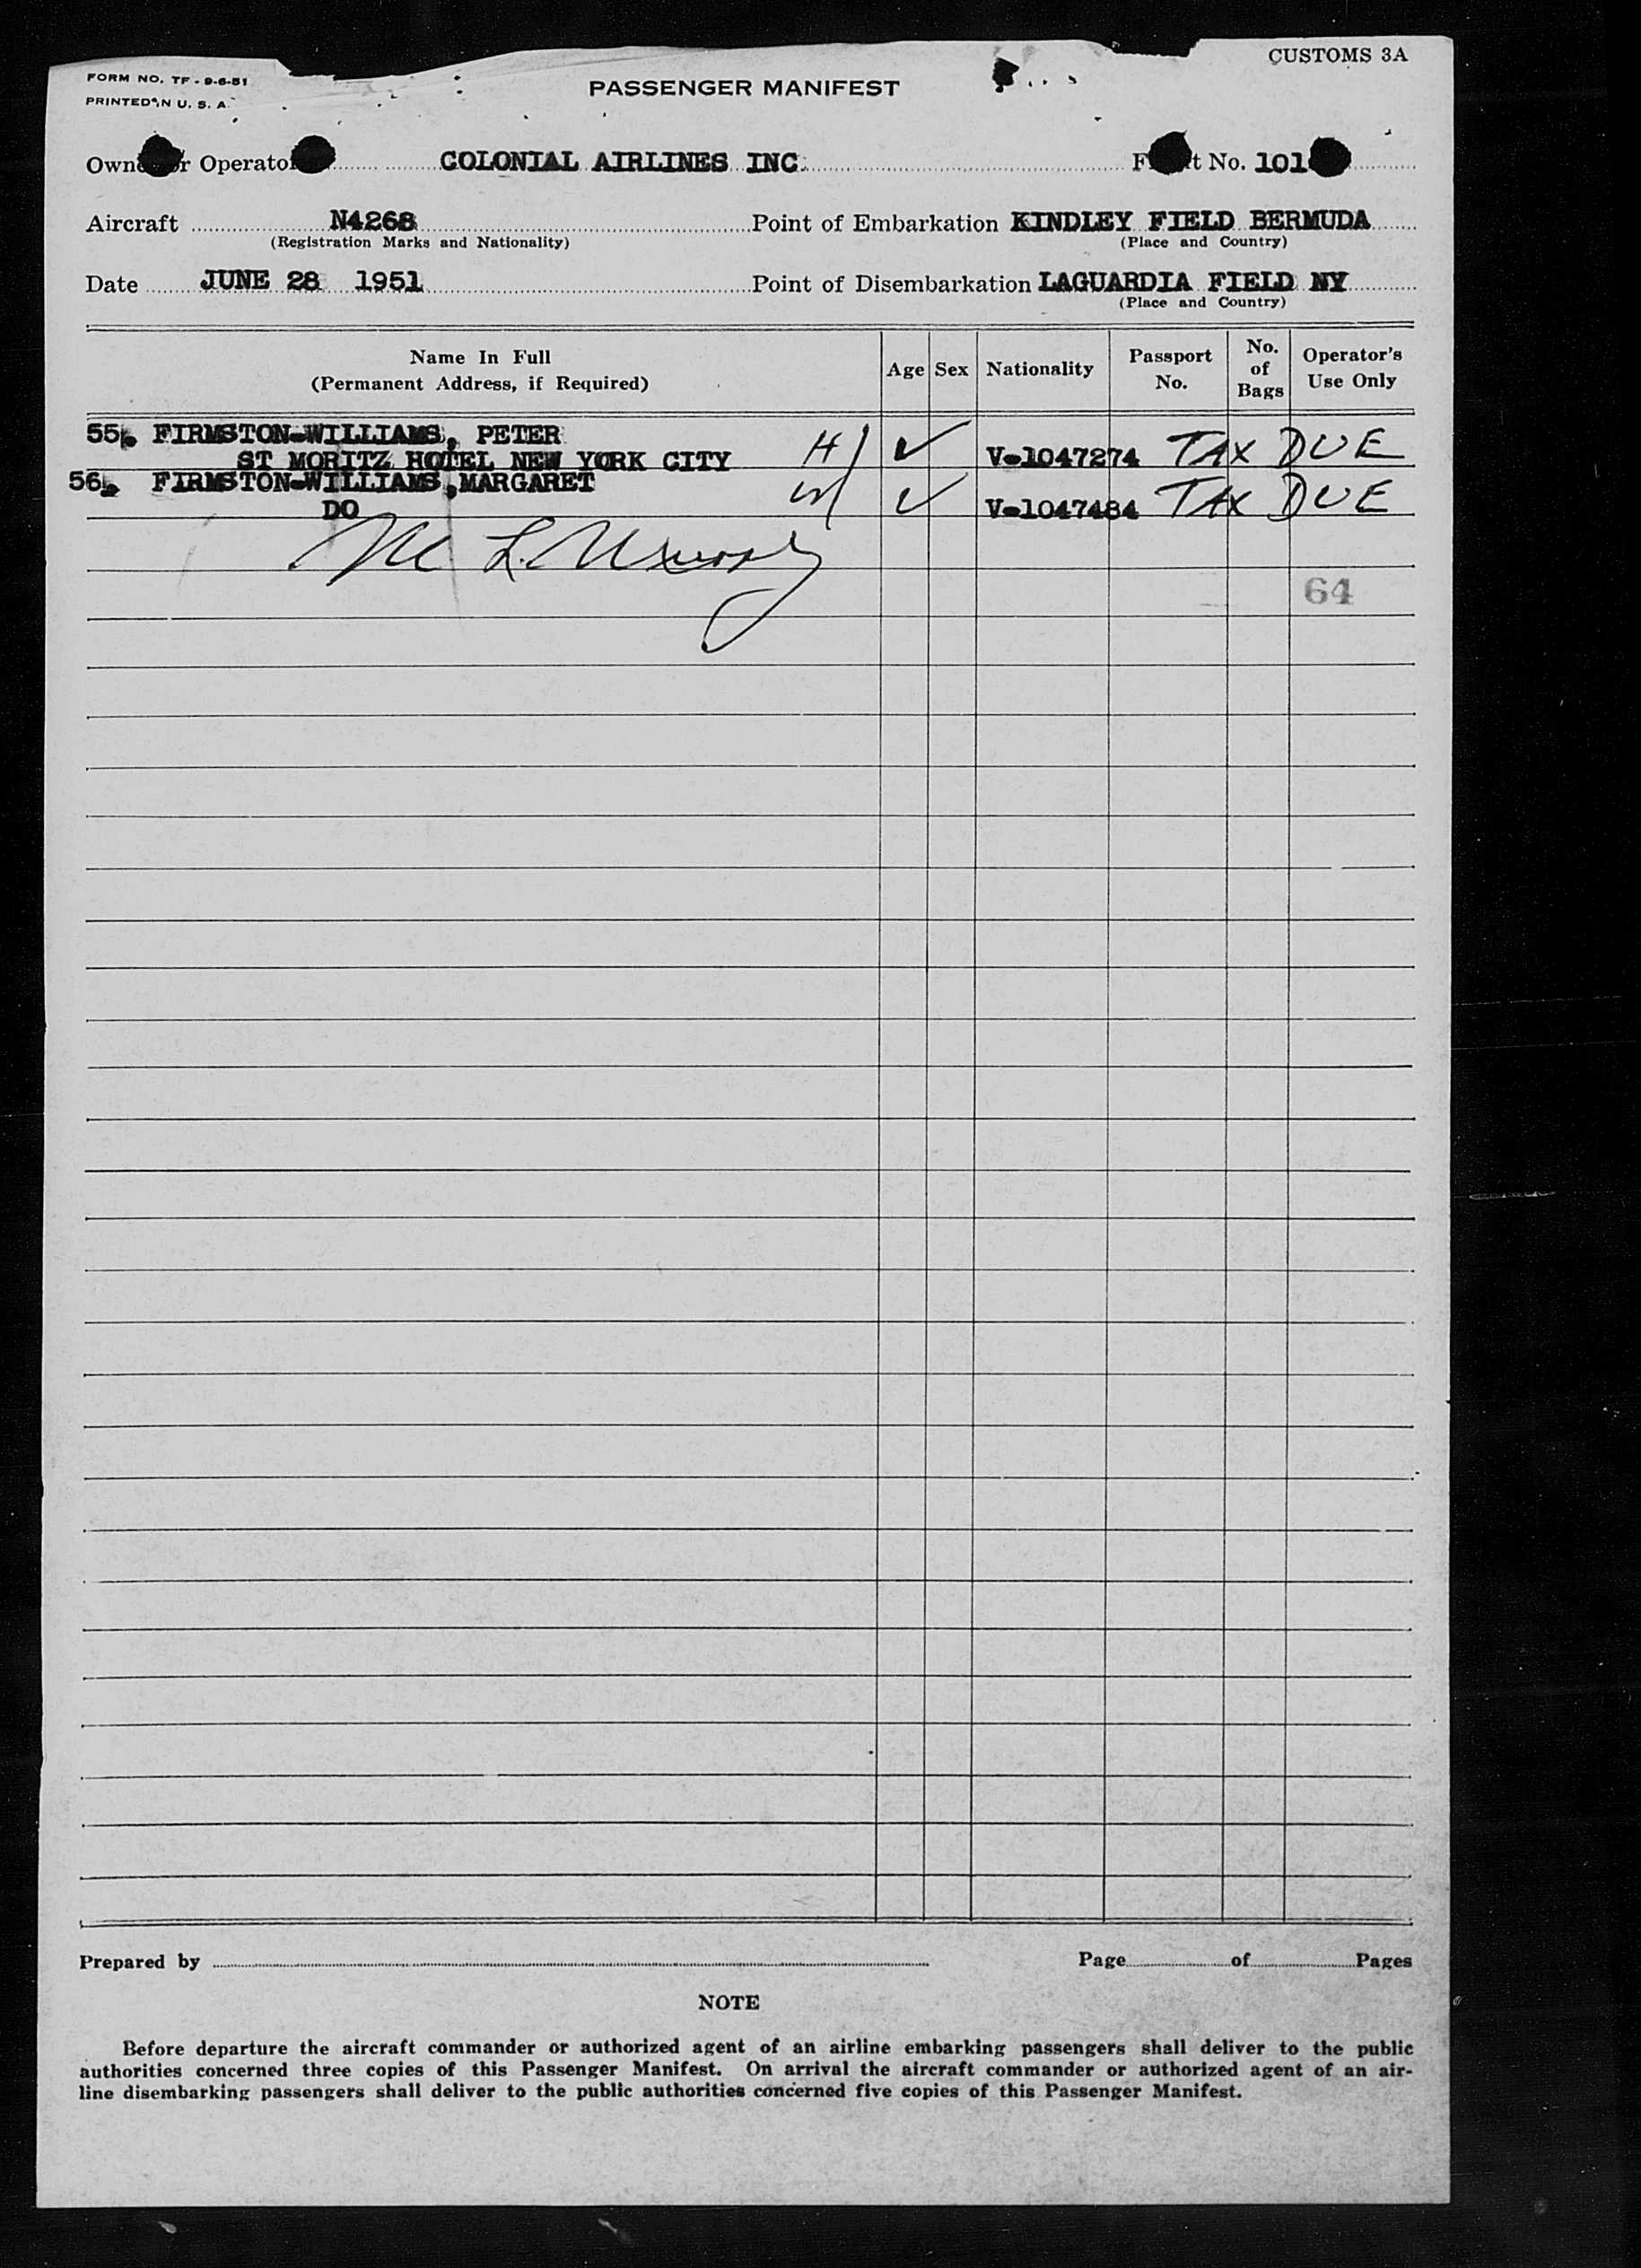 CUSTOMS 3A
FORM NO. TF - 9-6-51
PRINTED IN U. S. A.
PASSENGER MANIFEST
Owner or Operator COLONIAL AIRLINES INC. Flight No. 101
Aircraft N4268 Point of Embarkation KINDLEY FIELD BERMUDA
(Registration Marks and Nationality) (Place and Country)
Date JUNE 28 1951 Point of Disembarkation LAGUARDIA FIELD NY
(Place and Country)
Name In Full
(Permanent Address, if Required)
Age Sex Nationality
Passport
No.
No.
of
Bags
Operator's
Use Only
55. FIRMSTON-WILLIAMS, PETER
ST MORITZ HOTEL NEW YORK CITY H/ ✓ V-1047274 TAX DUE
56. FIRMSTON-WILLIAMS, MARGARET
DO W/ ✓ V-1047484 TAX DUE
M L.
64
Prepared by Page of Pages
NOTE
Before departure the aircraft commander or authorized agent of an airline embarking passengers shall deliver to the public
authorities concerned three copies of this Passenger Manifest. On arrival the aircraft commander or authorized agent of an air-
line disembarking passengers shall deliver to the public authorities concerned five copies of this Passenger Manifest.